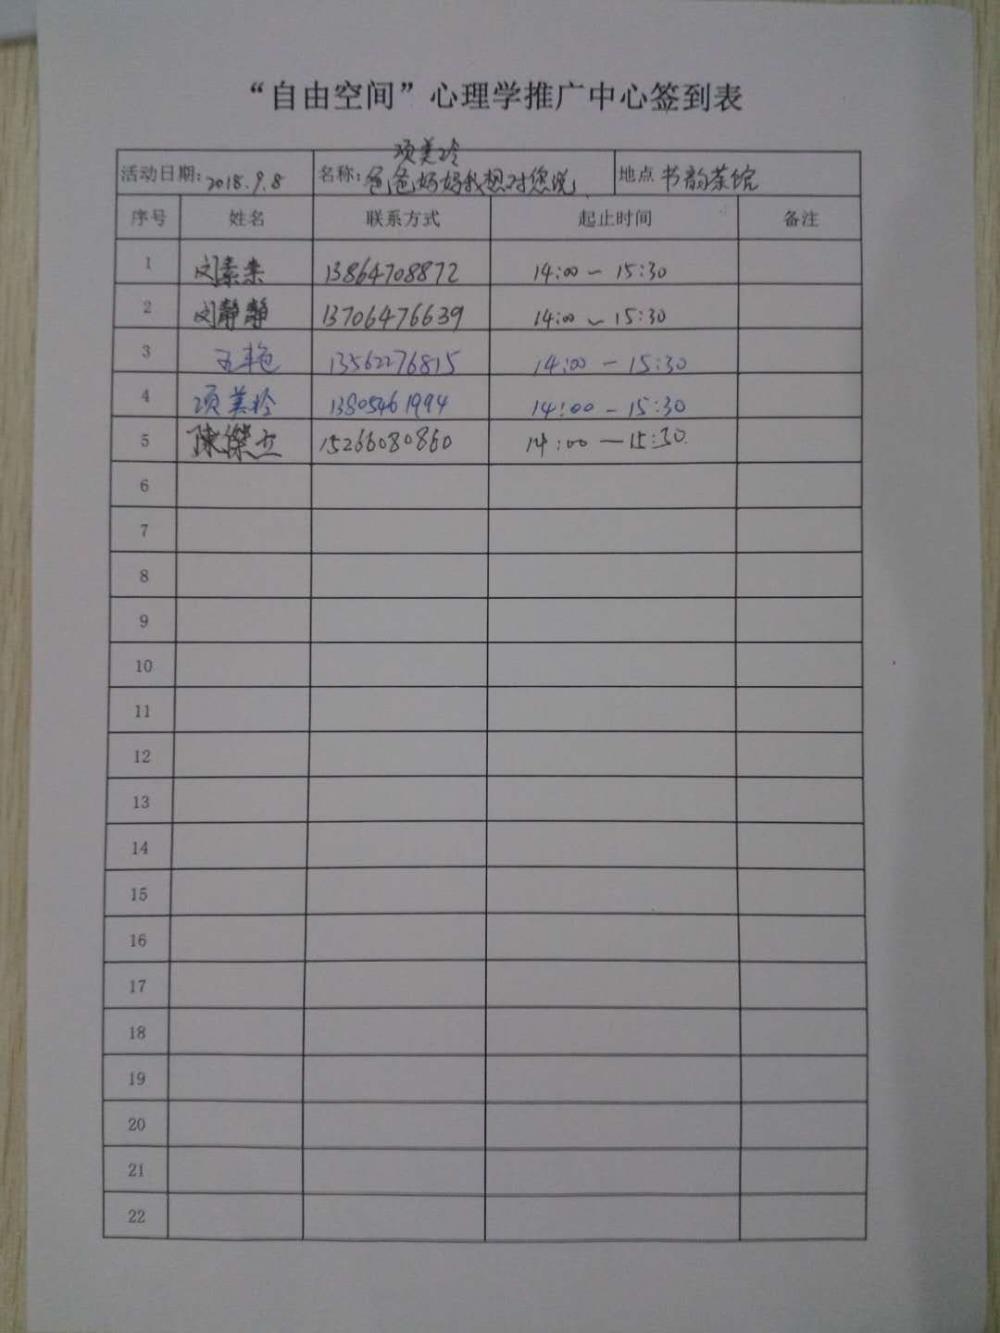 “自由空间”心理学推广中心签到表
项美玲
活动日期：2018.9.8 名称：爸爸妈妈我想对您说 地点 书韵茶馆
序号 姓名 联系方式 起止时间 备注
1 刘素来 13864708872 14:00 — 15:30
2 刘静静 13706476639 14:00 ~ 15:30
3 王艳 13562276815 14:00 — 15:30
4 项美玲 13805461994 14:00 — 15:30
5 陳傑 15266080860 14:00 — 15:30
6
7
8
9
10
11
12
13
14
15
16
17
18
19
20
21
22